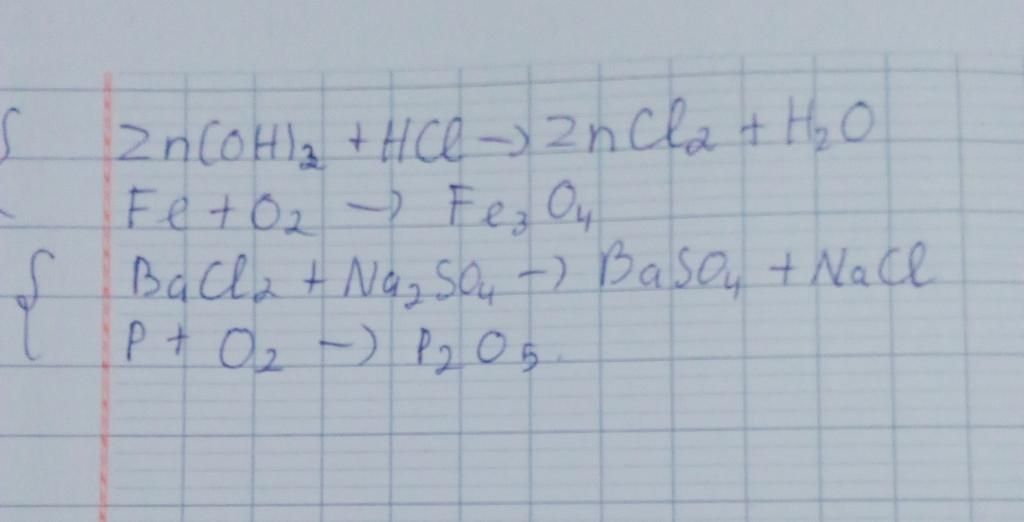 Zn(OH)2 + HCl → ZnCl2 + H2O
Fe + O2 → Fe3O4
BaCl2 + Na2SO4 → BaSO4 + NaCl
P + O2 → P2O5.